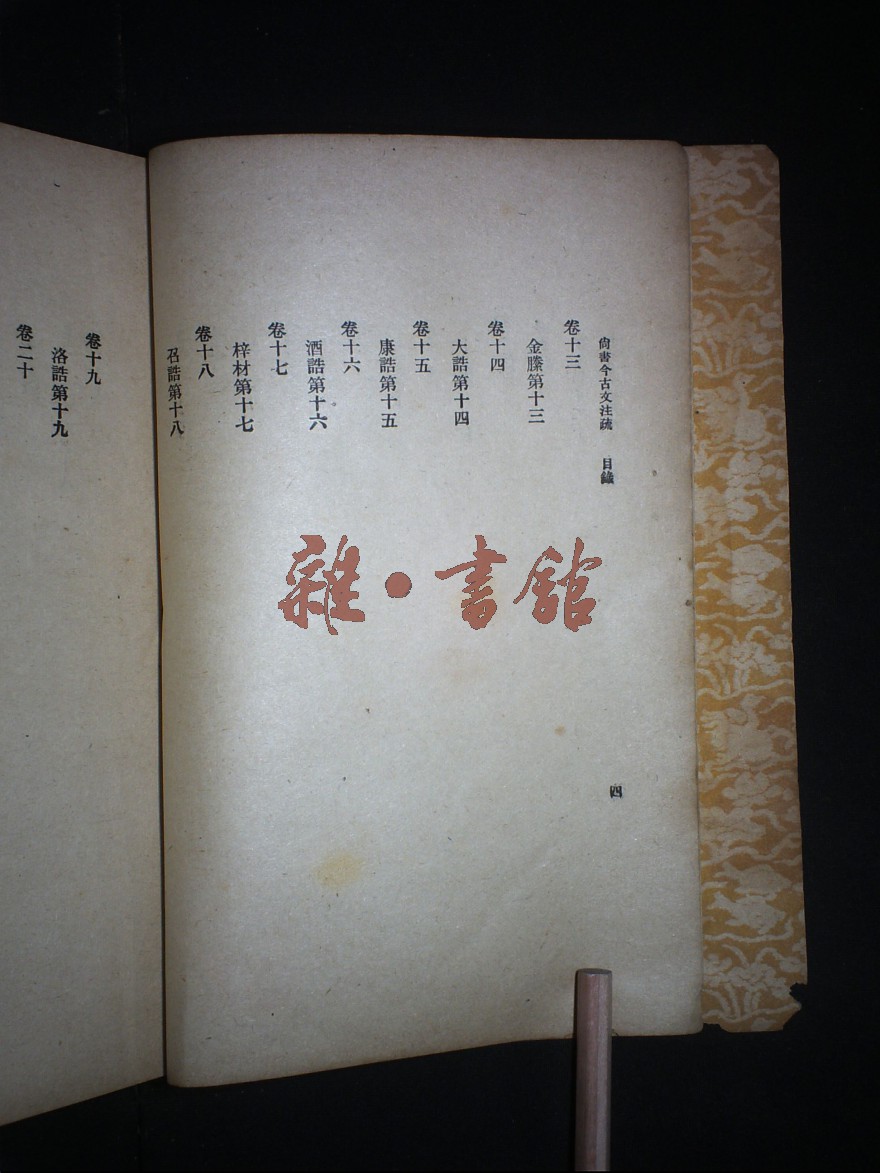 尙書今古文注疏 目錄
四
卷十三
金縢第十三
卷十四
大誥第十四
卷十五
康誥第十五
卷十六
酒誥第十六
卷十七
梓材第十七
卷十八
召誥第十八
卷十九
洛誥第十九
卷二十
雜•書館